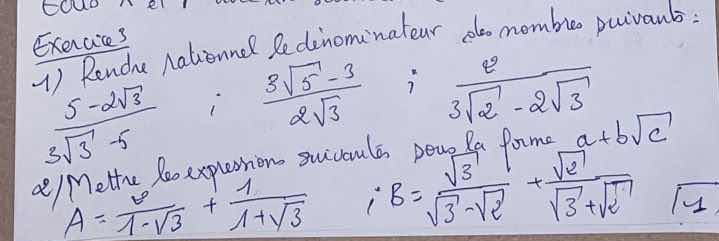 Exercice 3
1) Rendre rationnel le dénominateur des nombres suivants :
(5-2√3)/(3√3-5) ; (3√5-3)/(2√3) ; 2/(3√2-2√3)
2/ Mettre les expressions suivantes sous la forme a+b√c
A = 2/(1-√3) + 1/(1+√3) ; B = √3/(√3-√2) + √2/(√3+√2)